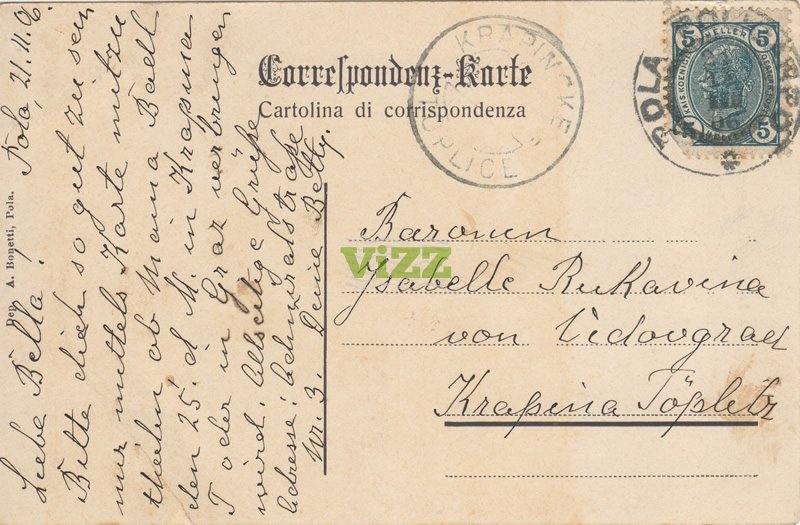 Correspondenz-Karte
Cartolina di corrispondenza
KRAPINSKE
TOPLICE
POLA
5 HELLER 5
5 HELLER 5
Baronin
Isabelle Rukavina
von Vidovgrad
Krapina Töplitz
ViZZ
Dep. A. Bonetti, Pola.
Pola, 21.11.06.
Liebe Bella!
Bitte dich so gut zu sein
mir mittels Karte mitzu
theilen ob Mama Badl
den 25. d M. in Krapina
T oder in Graz verbringen
wird. Allseitige Grüße
Adresse: Admiralstraße
Nr. 3. Deine Betty.